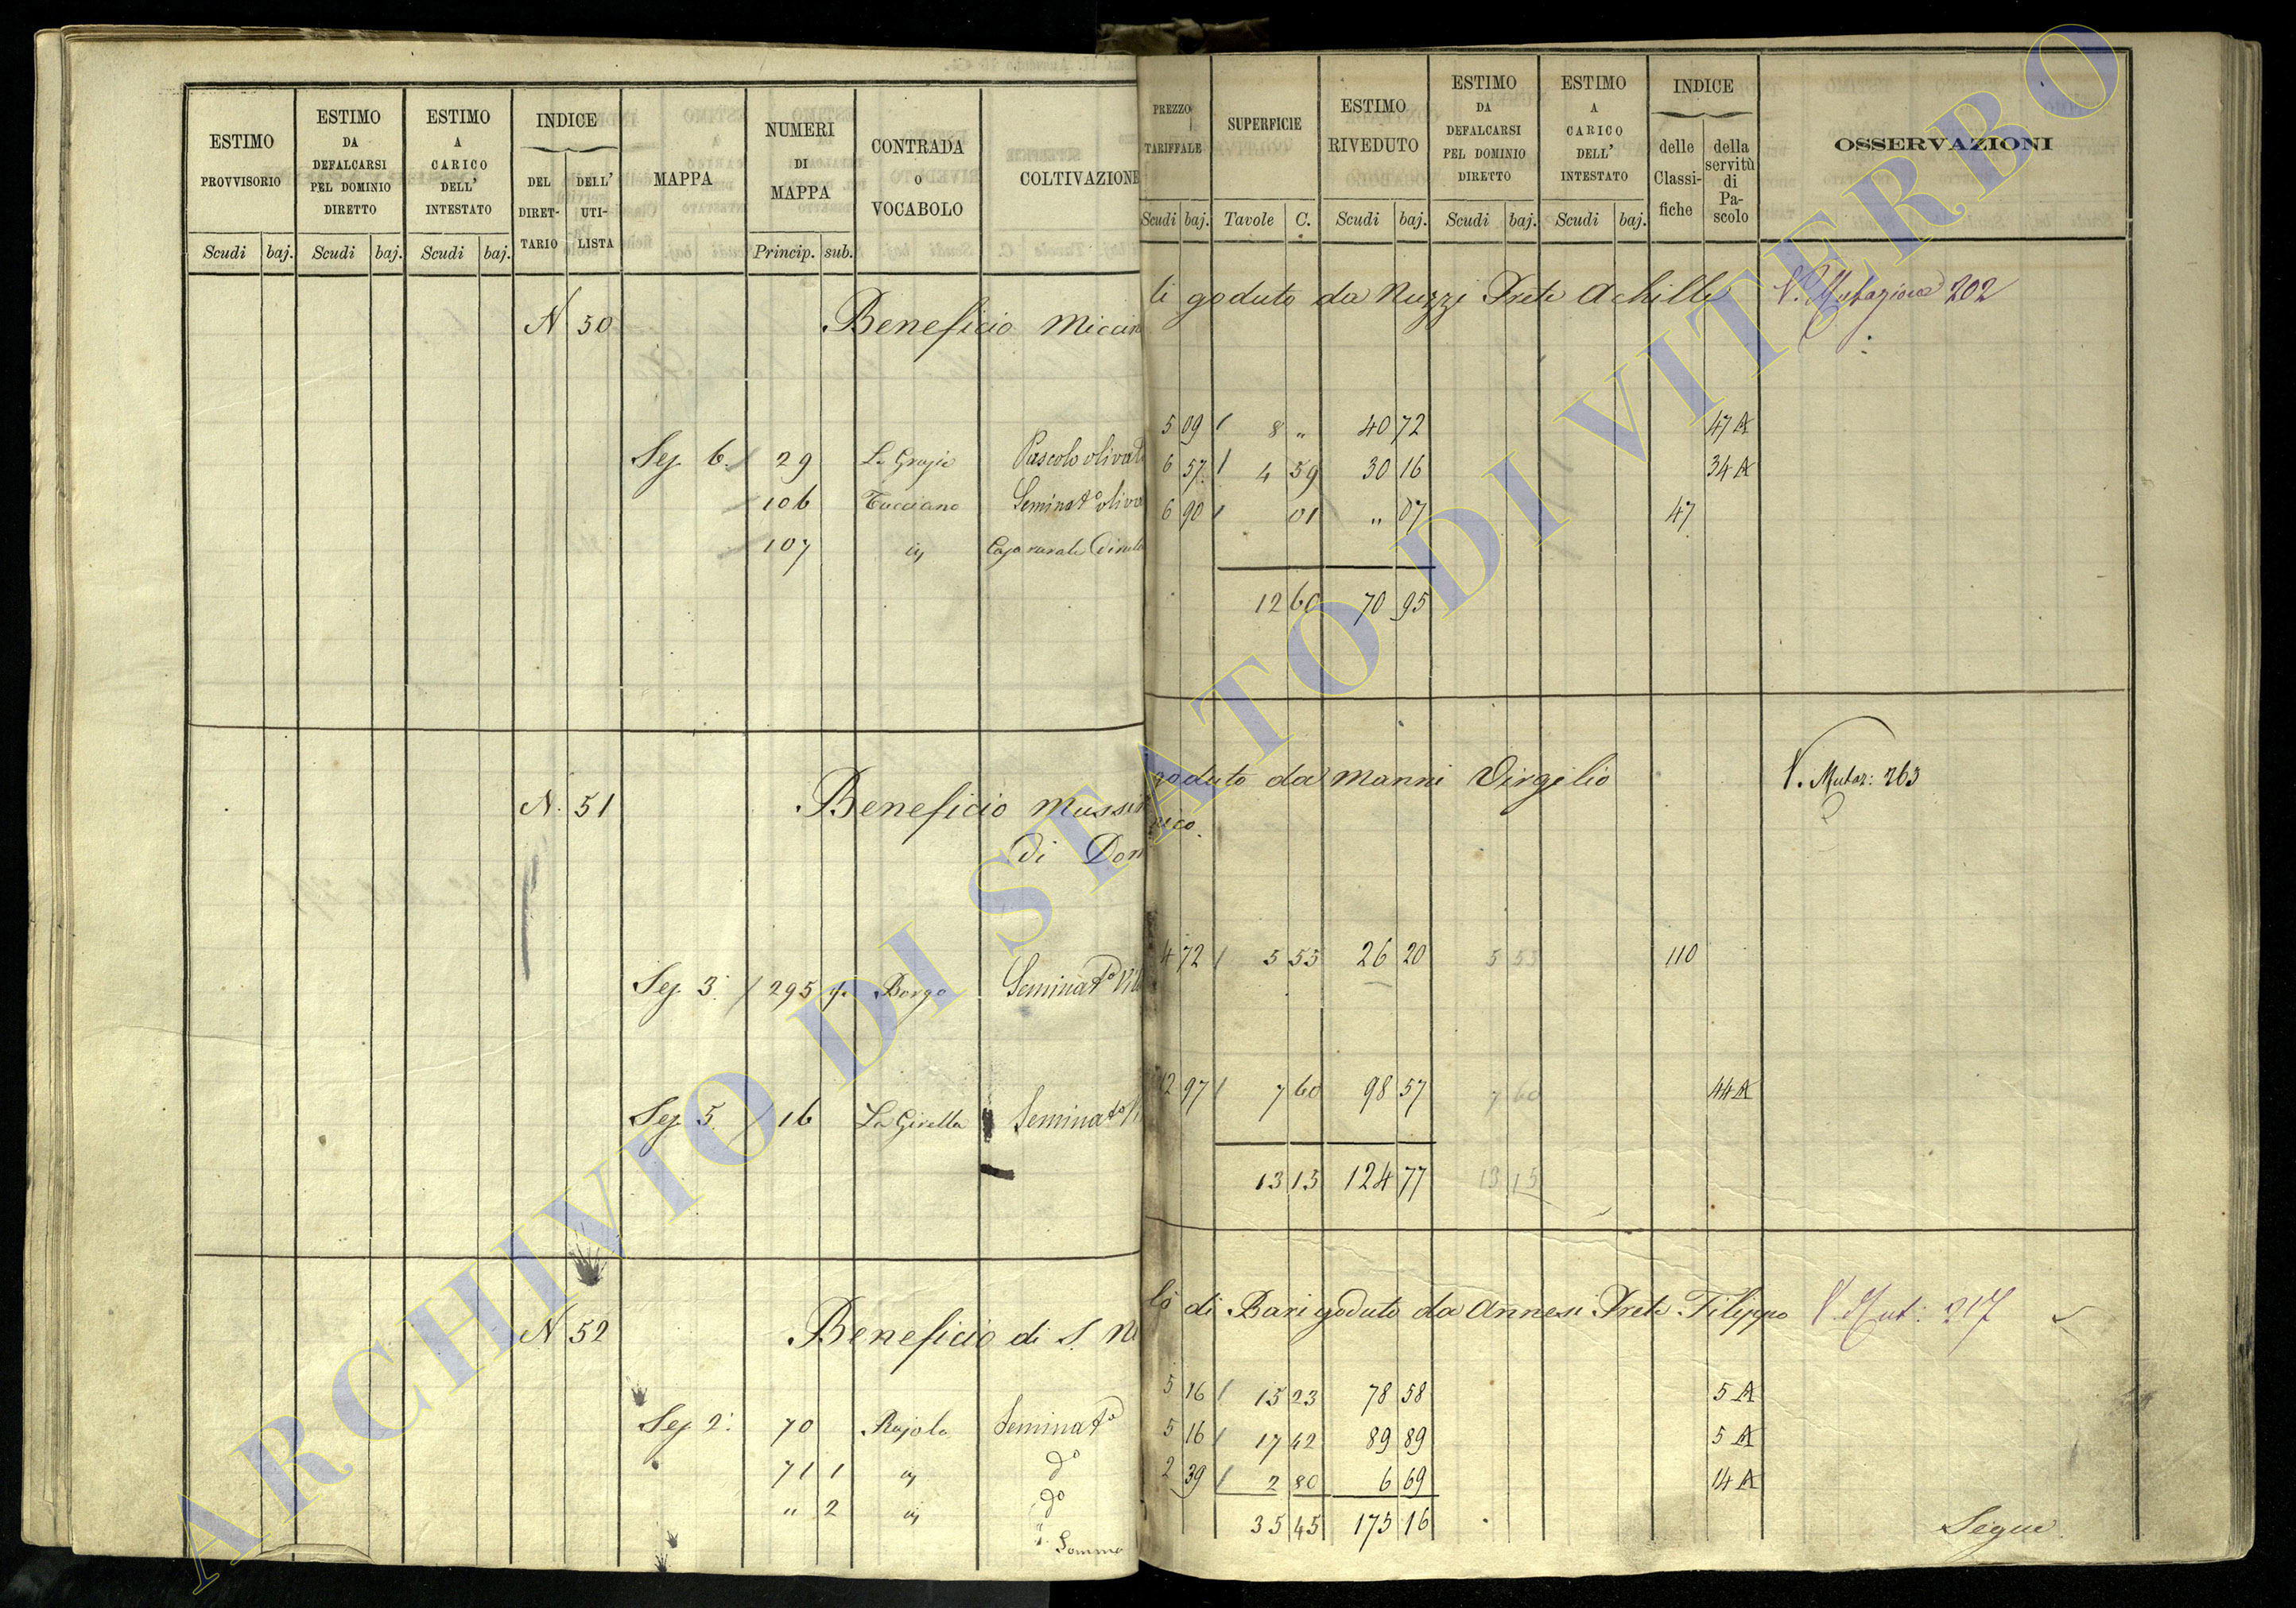 ESTIMO PROVVISORIO | ESTIMO DA DEFALCARSI PEL DOMINIO DIRETTO | ESTIMO A CARICO DELL' INTESTATO | INDICE DEL DIRET-TARIO | DELL' UTI-LISTA | MAPPA | NUMERI DI MAPPA | CONTRADA O VOCABOLO | COLTIVAZIONE | PREZZO TARIFFALE | SUPERFICIE | ESTIMO RIVEDUTO | ESTIMO DA DEFALCARSI PEL DOMINIO DIRETTO | ESTIMO A CARICO DELL' INTESTATO | INDICE delle Classi-fiche | della servitù di Pa-scolo | OSSERVAZIONI
Scudi baj. | Scudi baj. | Scudi baj. | Princip. sub. | Scudi baj. | Tavole C. | Scudi baj. | Scudi baj. | Scudi baj.
N 50 Beneficio Miccin
li goduto da Nuzzi Prete Achille V. Mutazione 202
Sez. 6. 29 Le Grazie Pascolo olivat 5 09 8 " 40 72 47 A
106 Tucciano Seminato oliva 6 57 4 59 30 16 34 A
107 Casa rurale 6 90 01 " 07 47
12 60 70 95
N. 51 Beneficio Mussi
goduto da Manni Virgilio V. Mutaz: 263
di Dom
nico.
Sez. 3. 295 Borgo Seminato 4 72 5 55 26 20 5 55 110
Sez. 5. 16 La Girella Seminato 12 97 7 60 98 57 7 60 44 A
13 15 124 77 13 15
N 52 Beneficio di S. Ni
lò di Bari goduto da Annesi Prete Filippo V. Mut: 217
Sez. 2. 70 Rajola Seminato 5 16 15 23 78 58 5 A
71 1 do 5 16 17 42 89 89 5 A
" 2 do 2 39 2 80 6 69 14 A
Somma 35 45 175 16
Segue
ARCHIVIO DI STATO DI VITERBO